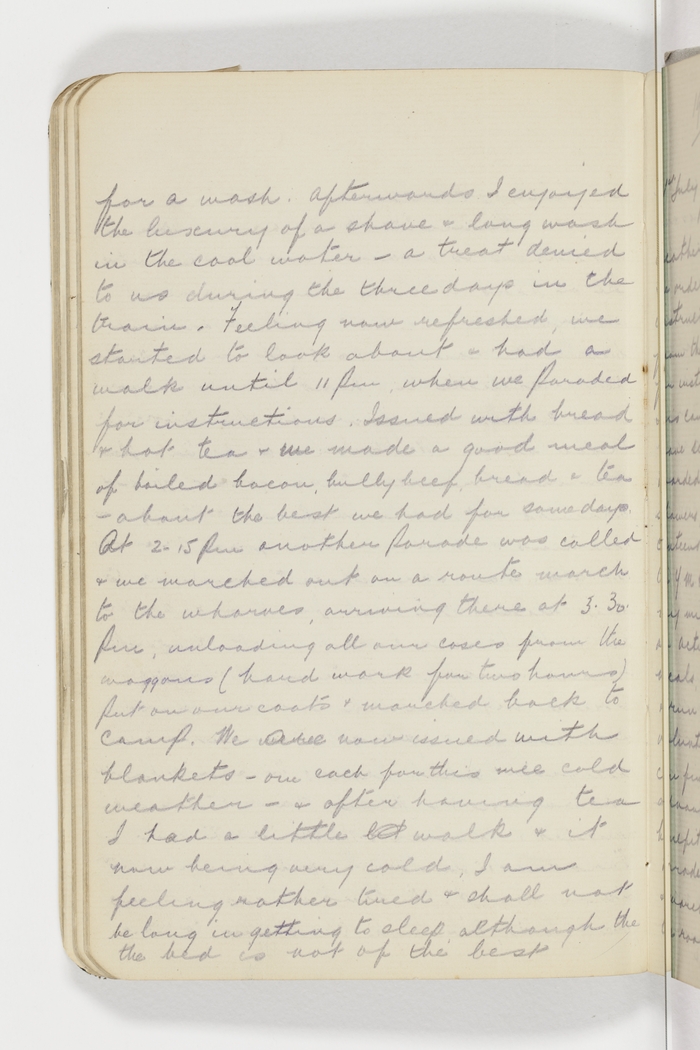 for a wash. Afterwards I enjoyed
the luxury of a shave & long wash
in the cool water - a treat denied
to us during the three days in the
train. Feeling now refreshed, we
started to look about & had a
walk until 11 pm, when we paraded
for instructions. Issued with bread
& hot tea & we made a good meal
of boiled bacon, bully beef, bread & tea
- about the best we had for some days.
At 2-15 pm another parade was called
& we marched out on a route march
to the wharves, arriving there at 3.30
pm, unloading all our cases from the
waggons (hard work for two hours)
put on our coats & marched back to
camp. We were now issued with
blankets - one each for this nice cold
weather - & after having tea
I had a little walk & it
now being very cold, I am
feeling rather tired & shall not
be long in getting to sleep, although the
the bed is not of the best